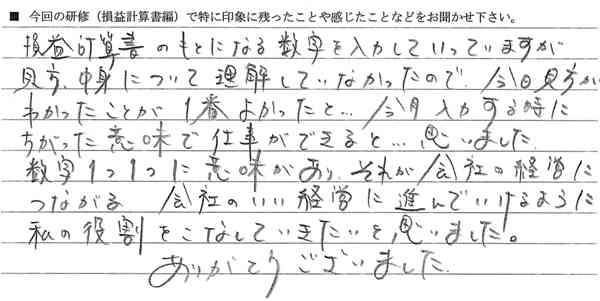 ■ 今回の研修（損益計算書編）で特に印象に残ったことや感じたことなどをお聞かせ下さい。
損益計算書のもとになる数字を入力していっていますが
見方、中身について理解していなかったので、今日見方が
わかったことが1番よかったと…今月入力する時に
ちがった意味で仕事ができると…思いました。
数字1つ1つに意味があり、それが会社の経営に
つながる 会社のいい経営に進んでいけるように
私の役割をこなしていきたいと思いました。
ありがとうございました。